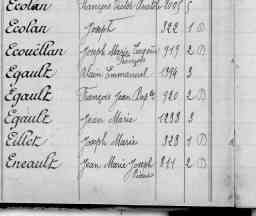 Ecolan François Victor 2005 5
Ecolan Joseph 322 1 D
Ecouëllan Joseph Marie François 919 2 D
Egault Alain Emmanuel 1394 3
Egault François Jean Bapte 920 2 D
Egault Jean Marie 1238 3
Elliot Joseph Marie 328 1 D
Eneault Jean Marie Joseph 811 2 D
Pierre